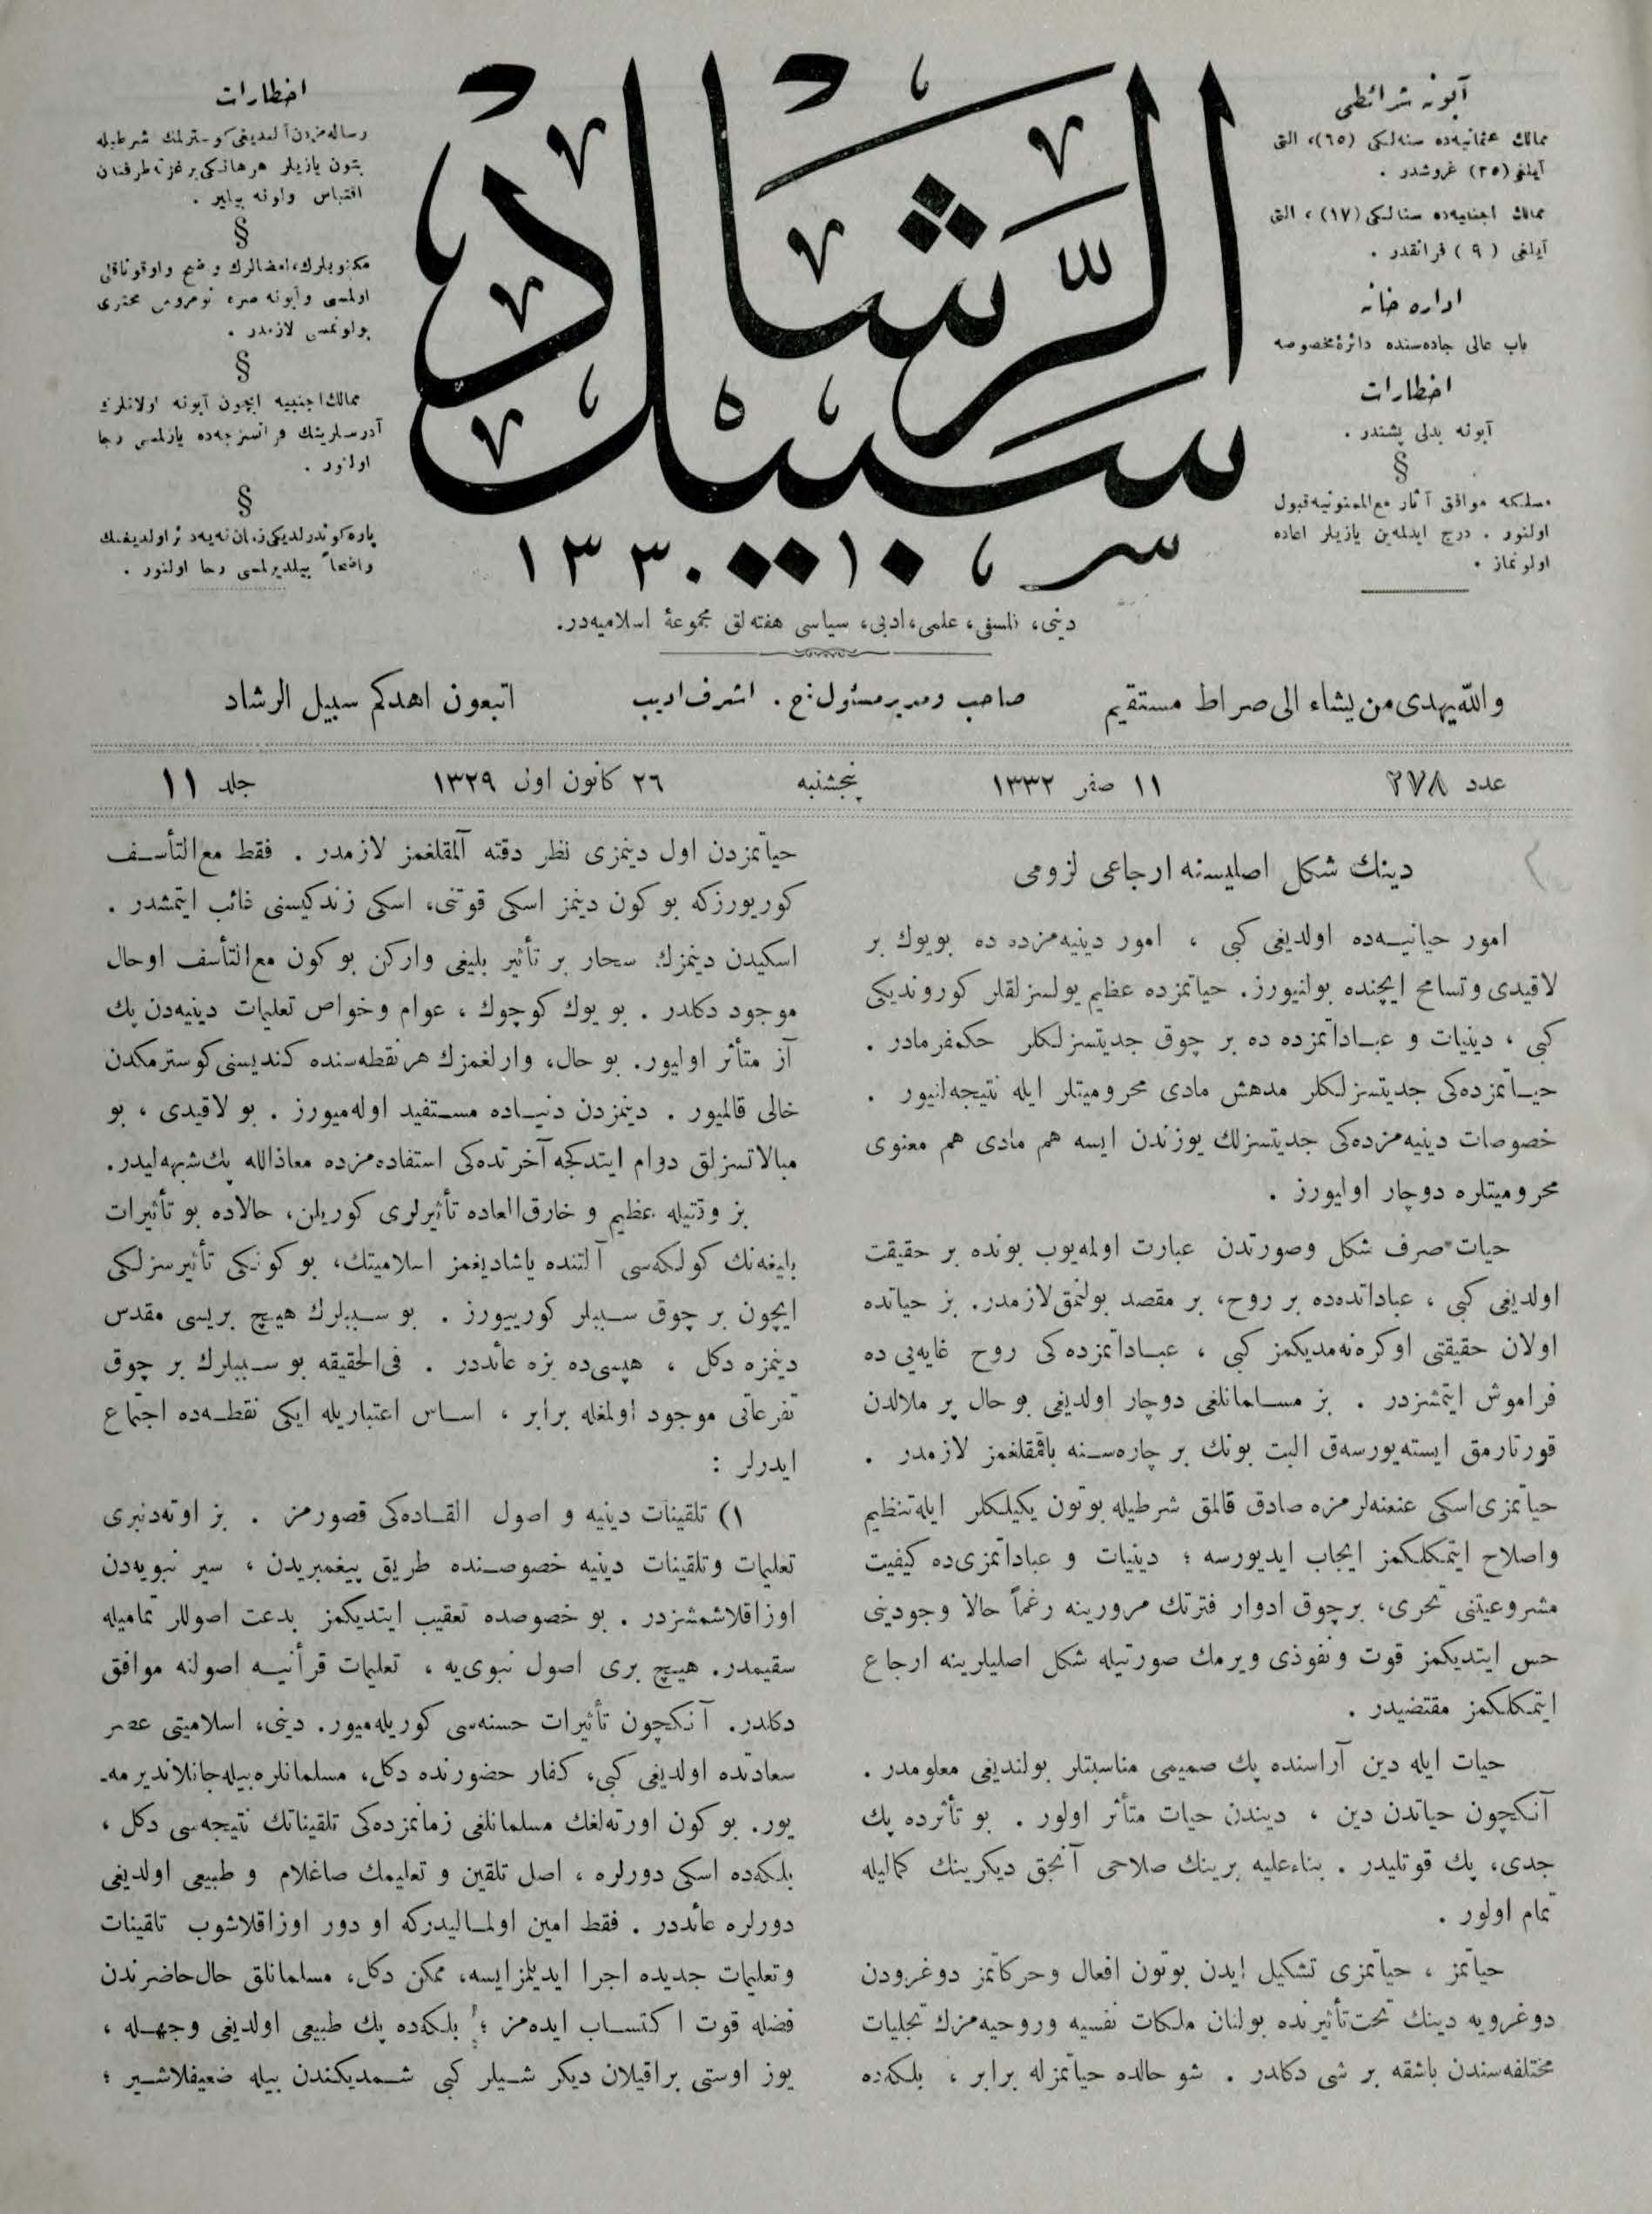 آبونه شرائطی
ممالك عثمانیه‌ده سنه‌لكی (٦٥)، التی
آیلغی (٣٥) غروشدر .
ممالك اجنبیه‌ده سنالكی (١٧) ، التی
آیلغی (٩) فرانقدر .
اداره خانه
باب عالی جاده‌سنده دائرهٔ مخصوصه
اخطارات
آبونه بدلی پشیندر .
§
مسلكه موافق آثار مع‌الممنونیه قبول
اولنور . درج ایدلمه‌ین یازیلر اعاده
اولونماز .
سبیل الرشاد
سر ١٠ ١٣٣٠
اخطارات
رساله‌مزدن آلندیغی كوسترلمك شرطیله
بتون یازیلر هر هانكی بر غزته طرفندن
اقتباس اولونه بیلیر .
§
مكتوبلرك، امضالرك واضح واوقوناقلی
اولمسی وآبونه صره نومروسنی محتوی
بولونمسی لازمدر .
§
ممالك اجنبیه ایچون آبونه اولانلرك
آدرسلرینك فرانسزجه‌ده یازلمسی رجا
اولنور .
§
پاره كوندرلدیكی زمان نه‌یه دائر اولدیغنك
واضحاً بیلدیرلمسی رجا اولنور .
دینی، فلسفی، علمی، ادبی، سیاسی هفته‌لق مجموعهٔ اسلامیه‌در.
والله یهدی من یشاء الی صراط مستقیم
صاحب ومدیر مسئول : ح . اشرف ادیب
اتبعون اهدكم سبیل الرشاد
عدد ٢٧٨
١١ صفر ١٣٣٢
پنجشنبه
٢٦ كانون اول ١٣٢٩
جلد ١١
دینك شكل اصلیسنه ارجاعی لزومی
امور حیاتیـه‌ده اولدیغی كبی ، امور دینیه‌مزده ده بویوك بر
لاقیدی وتسامح ایچنده بولنیورز. حیاتمزده عظیم یولسزلقلر كوروندیكی
كبی ، دینیات و عبـاداتمزده ده بر چوق جدیتسزلكلر حكمفرمادر .
حیـاتمزده‌كی جدیتسزلكلر مدهش مادی محرومیتلر ایله نتیجه‌لنیور .
خصوصات دینیه‌مزده‌كی جدیتسزلك یوزندن ایسه هم مادی هم معنوی
محرومیتلره دوچار اولیورز .
حیات صرف شكل وصورتدن عبارت اولمه‌یوب بونده بر حقیقت
اولدیغی كبی ، عباداتده‌ده بر روح، بر مقصد بولنمق لازمدر. بز حیاتده
اولان حقیقتی اوكره‌نه‌مدیكمز كبی ، عبـاداتمزده‌كی روح غایه‌یی ده
فراموش ایتمشزدر . بز مسـلمانلغی دوچار اولدیغی بو حال پر ملالدن
قورتارمق ایسته‌یورسه‌ق البت بونك بر چاره‌سـنه باقمقلغمز لازمدر .
حیاتمزی اسكی عنعنه‌لرمزه صادق قالمق شرطیله بوتون یكیلكلر ایله تنظیم
واصلاح ایتمكلكمز ایجاب ایدیورسه ؛ دینیات و عباداتمزی‌ده كیفیت
مشروعیتنی تحری، برچوق ادوار فترتك مرورینه رغماً حالا وجودینی
حس ایتدیكمز قوت ونفوذی ویرمك صورتیله شكل اصلیلرینه ارجاع
ایتمكلكمز مقتضیدر .
حیات ایله دین آراسنده پك صمیمی مناسبتلر بولندیغی معلومدر .
آنكچون حیاتدن دین ، دیندن حیات متأثر اولور . بو تأثرده پك
جدی، پك قوتلیدر . بناءعلیه برینك صلاحی آنجق دیكرینك كمالیله
تمام اولور .
حیاتمز ، حیاتمزی تشكیل ایدن بوتون افعال وحركاتمز دوغرودن
دوغرویه دینك تحت تأثیرنده بولنان ملكات نفسیه وروحیه‌مزك تجلیات
مختلفه‌سندن باشقه بر شی دكلدر . شو حالده حیاتمزله برابر ، بلكه‌ده
حیاتمزدن اول دینمزی نظر دقته آلمقلغمز لازمدر . فقط مع‌التأسـف
كوریورزكه بو كون دینمز اسكی قوتنی، اسكی زنده‌كیسنی غائب ایتمشدر .
اسكیدن دینمزك سحار بر تأثیر بلیغی واركن بو كون مع‌التأسف اوحال
موجود دكلدر . بو یوك كوچوك ، عوام وخواص تعلیمات دینیه‌دن پك
آز متأثر اولیور. بو حال، وارلغمزك هر نقطه‌سنده كندیسنی كوسترمكدن
خالی قالمیور . دینمزدن دنیـاده مسـتفید اوله‌میورز . بو لاقیدی ، بو
مبالاتسزلق دوام ایتدكجه آخرتده‌كی استفاده‌مزده معاذالله پك شبهه‌لیدر.
بز وقتیله عظیم و خارق‌العاده تأثیرلری كوریلن، حالاده بو تأثیرات
بلیغه‌نك كولكه‌سی آلتنده یاشادیغمز اسلامیتك، بو كونكی تأثیرسزلكی
ایچون بر چوق سـببلر كورییورز . بو سـببلرك هیـچ بریسی مقدس
دینمزه دكل ، هپسی‌ده بزه عائددر . فی‌الحقیقه بو سـببلرك بر چوق
تفرعاتی موجود اولمغله برابر ، اسـاس اعتباریله ایكی نقطـه‌ده اجتماع
ایدرلر :
١) تلقینات دینیه و اصول القـاده‌كی قصورمز . بز اوته‌دنبری
تعلیمات وتلقینات دینیه خصوصـنده طریق پیغمبریدن ، سیر نبویه‌دن
اوزاقلاشمشزدر . بو خصوصده تعقیب ایتدیكمز بدعت اصوللر تمامیله
سقیمدر. هیـچ بری اصول نبوی‌یه ، تعلیمات قرآنیـه اصولنه موافق
دكلدر. آنكچون تأثیرات حسنه‌سی كوریله‌میور. دینی، اسلامیتی عصر
سعادتده اولدیغی كبی، كفار حضورنده دكل، مسلمانلره بیله جانلاندیرمه‌ـ
یور. بو كون اورته‌لغك مسلمانلغی زمانمزده‌كی تلقیناتك نتیجه‌سی دكل ،
بلكه‌ده اسكی دورلره ، اصل تلقین و تعلیمك صاغلام و طبیعی اولدیغی
دورلره عائددر . فقط امین اولمـالیدركه او دور اوزاقلاشوب تلقینات
وتعلیمات جدیده اجرا ایدیلمزایسه، ممكن دكل، مسلمانلق حال حاضرندن
فضله قوت اكتسـاب ایده‌مز ؛ بلكه‌ده پك طبیعی اولدیغی وجهـله ،
یوز اوستی براقیلان دیكر شـیلر كبی شـمدیكندن بیله ضعیفلاشـیر ؛